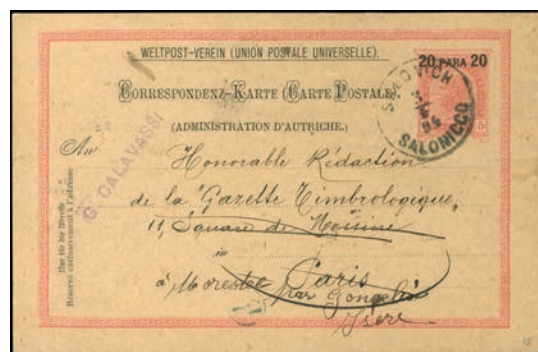 WELTPOST-VEREIN (UNION POSTALE UNIVERSELLE).
20 PARA 20
CORRESPONDENZ-KARTE (CARTE POSTALE).
(ADMINISTRATION D'AUTRICHE.)
SALONICCO
G. CALAVASSI
An
Honorable Rédaction
de la "Gazette Timbrologique"
11, Square de Messine
in
à Morestel Paris
par
Isère
Nur für die Adresse
Réservé exclusivement à l'adresse
15